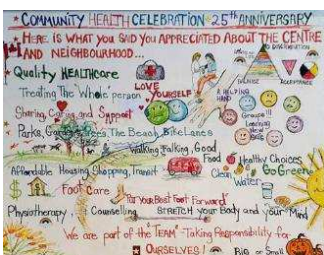 COMMUNITY HEALTH CELEBRATION 25th ANNIVERSARY
HERE IS WHAT YOU SAID YOU APPRECIATED ABOUT THE CENTRE
AND NEIGHBOURHOOD...
Quality HEALTHcare
BALANCE
ACCEPTANCE
Treating The Whole person
LOVE
YOURSELF
A HELPING
HAND
Sharing, Caring and Support
Groups!!!
Learning
New
Skills
Parks, Gardens, Trees, The Beach, Bike Lanes
Walking, Talking, Good
Food
Healthy Choices
Affordable Housing, Shopping, Transit
Clean
Water
Go Green
Foot Care
"Put Your Best Foot Forward"
Physiotherapy, Counselling
STRETCH your Body and your Mind
We are part of the "TEAM" - Taking Responsibility for
OURSELVES!
BIG or Small